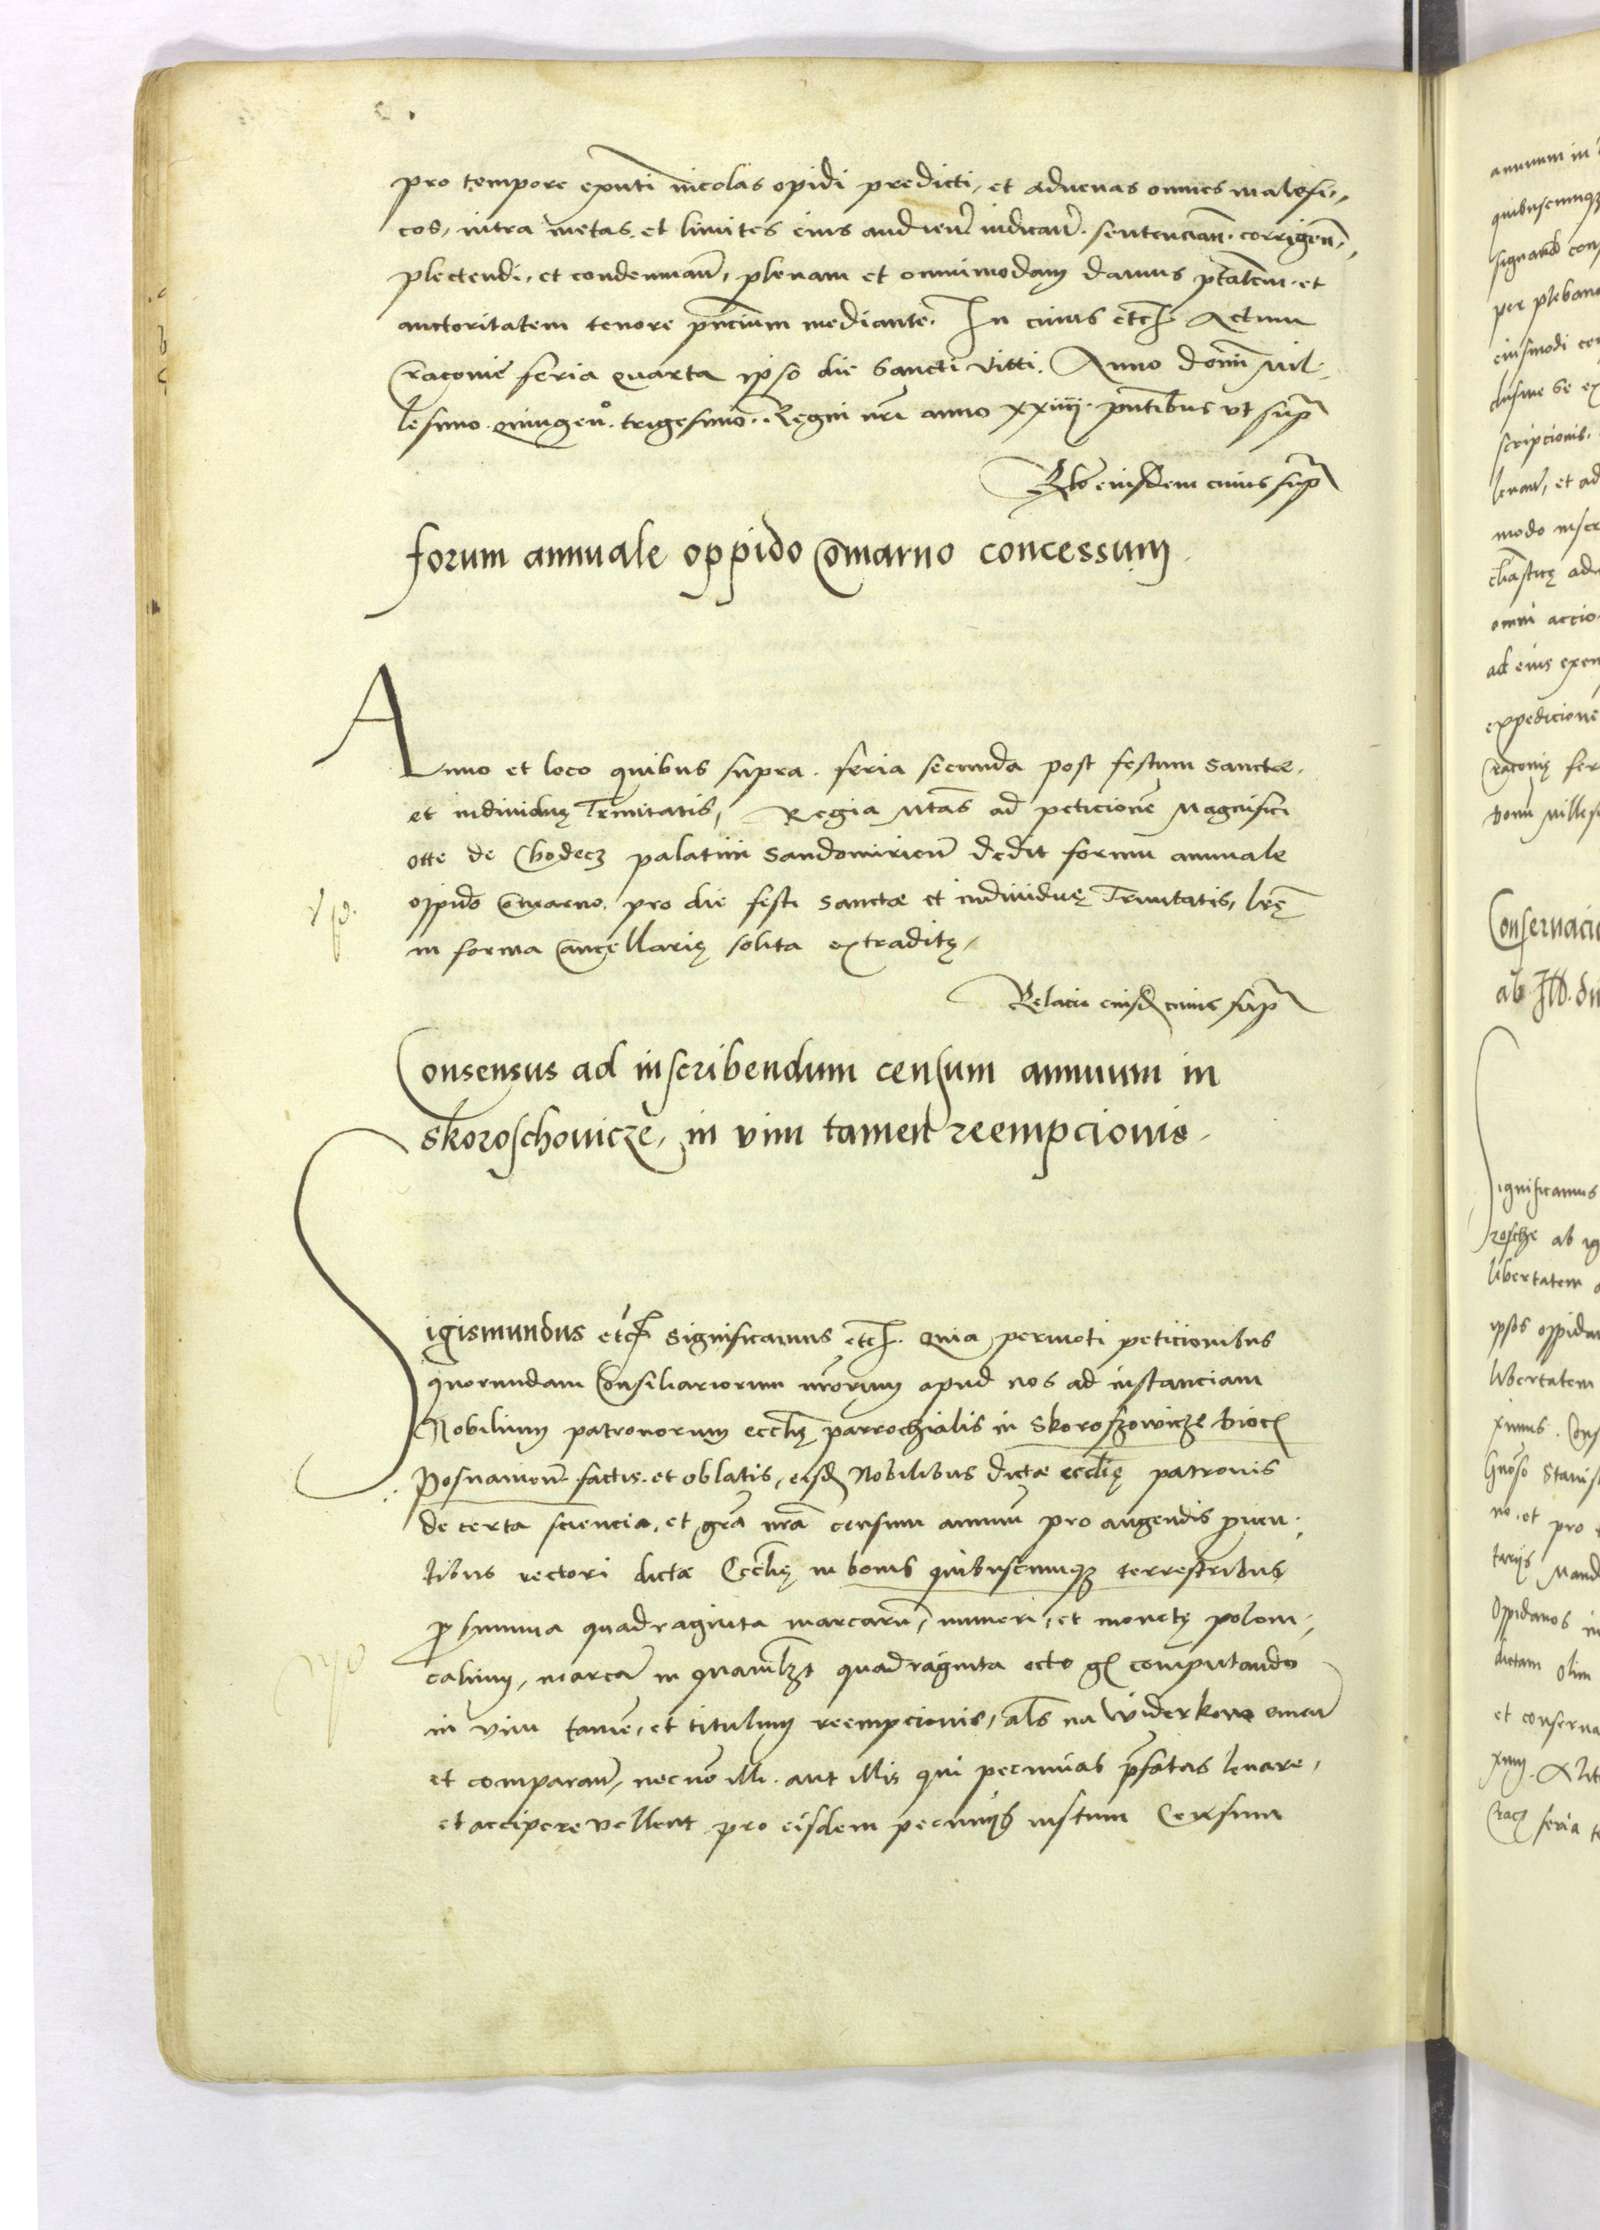 pro tempore exn̄ti incolas opidi predicti, et aduenas omnes malefi-
cos, intra metas et limites eius audien̄ iudican̄. sentencian̄. corrigen̄,
plectendi, et condemnan̄, plenam et omnimodam damus ptātem et
auctoritatem tenore pn̄cium mediante. In cuius etc. Actum
Cracovie feria quarta ipso die Sancti Vitti. Anno domī Mil-
lesimo quingen̊. trigesimo. Regni nr̄i anno xxiiij. pn̄tibus vt supra
Rlo eiusdem cuius supra
forum annuale oppido Comarno concessum.
Anno et loco quibus supra. feria secunda post festum sanctæ
et indiuiduę Trinitatis, Regia Mtās ad peticionē Magnifici
otte de Chodecz palatini Sandomirien̄ dedit forum annuale
oppido Comarno. pro die festi sanctæ et indiuiduę Trinitatis, lr̄ę
in forma Cancellarię solita extraditę.
Relacio eiusd cuius supra
Consensus ad inscribendum censum annuum in
Skoroschovicze, in vim tamen reempcionis.
Sigismundus etc. Significamus etc. Quia permoti peticionibus
quorundam Consiliariorum nr̄orum apud nos ad instanciam
Nobilium patronorum eccl̄ię parrochialis in Skoroszowicze dioc
Posnanien̄. factis et oblatis, eisd Nobilibus dictæ eccl̄ię patronis
de certa sciencia, et gr̄a nr̄a censum annuū pro augendis prouen-
tibus rectori dictæ Eccl̄ię in bonis quibuscunqꝫ terrestribus
pro summa quadraginta marcarū, numeri, et monetę poloni-
calium, marcā in quamlꝫt quadraginta octo gr computando
in vim tamē, et titulum reempcionis, als na widerkow emen̄
et comparan̄, necnō illi aut illis qui pecunias pr̄fatas leuare,
et accipere vellent pro eisdem pecunijs iustum Censum
annuum in
quibuscunqꝫ
per plebanu
eiusmodi cen
scripcionis.
leuan̄, et ad
modo inscr
omni accio
ad eius exem
expedicione
Cracovię fer
Conseruacio
Significamus
libertatem
ipsos oppidan
libertatem
no. et pro
Oppidanos in
dictam olim
et conserua